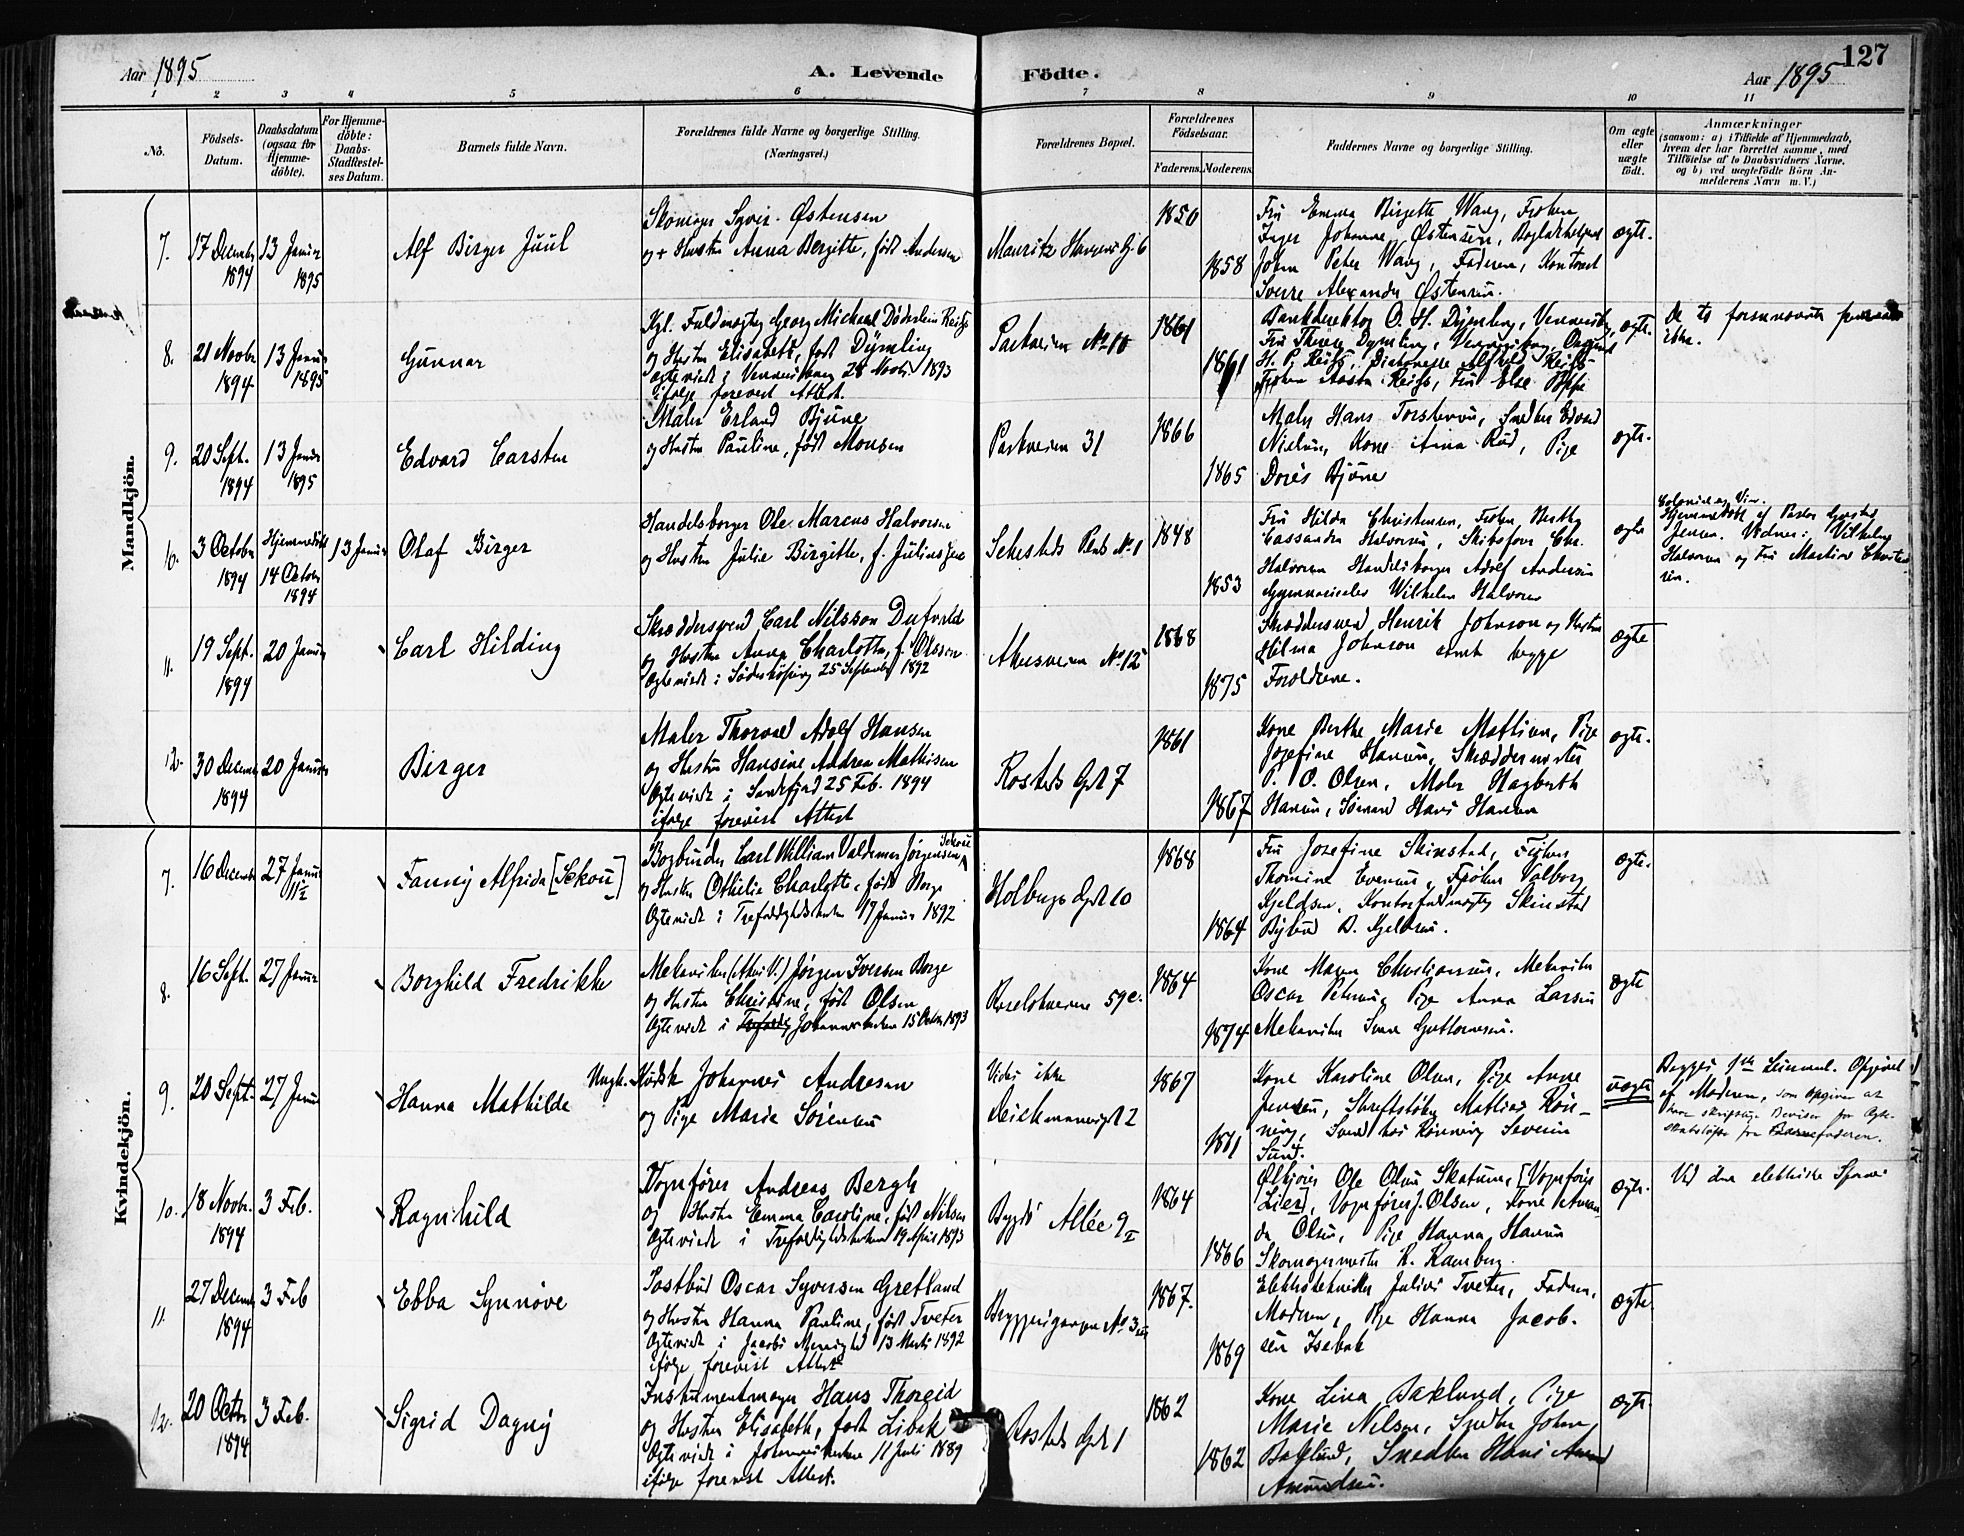 Aar 1895
A. Levende
Födte.
127
Aar 1895
1 2 3 4 5 6 7 8 9 10 11
No.
Födsels-
Datum.
Daabsdatum
(ogsaa for
Hjemme-
döbte).
For Hjemme-
döbte:
Daabs-
Stadfæstel-
ses Datum.
Barnets fulde Navn.
Forældrenes fulde Navne og borgerlige Stilling.
(Næringsvei.)
Forældrenes Bopæl.
Forældrenes
Födselsaar.
Faderens.
Moderens.
Faddernes Navne og borgerlige Stilling.
Om ægte
eller
uægte
födt.
Anmærkninger
(saasom: a) i Tilfælde af Hjemmedaab,
hvem der har forrettet samme, med
Tilföielse af to Daabsvidners Navne,
og b) ved uægtefödte Börn An-
melderens Navn m. V.)
Mandkjön.
7.
17 Decembr
1894
13 Januar
1895
Alf Birger Juul
Østensen
Hustru Anna Bergitte, født Andersen
Mauritz Hansens G. 6
1850
1858
Fru Emma Birgette Wang, Frøken
Inger Johanne Østensen,
John Peter Wang, Faderen,
Sverre Alexander Østensen.
ægte.
8.
21 Novbr
1894
13 Januar
1895
Gunnar
Kgl. Fuldmægtig Georg Michael Døderlein Reigs
og Hustru Elisabeth, født Dymling
28 Novbr 1893
ifølge forevist Attest.
Parkveien No 10
1861
1861
Bankdirektør O. H. Dymling,
ægte.
De to
ikke.
9.
20 Sept.
1894
13 Januar
1895
Edvard Carsten
Maler Erland Bjune
og Hustru Pauline, født Monsen
Parkveien 31
1866
1865
Maler Hans Torstensen, Snedker Edvard
Nielsen, Kone Anna Rud, Pige
Doris Bjune
ægte.
10.
3 October
1894
Hjemmedøbt
14 October
1894
13 Januar
Olaf Birger
Handelsborger Ole Marcus Halvorsen
og Hustru Julie Birgitte, f. Juliussen
Sehesteds Plads No. 1
1848
1853
Fru Hilda Christensen, Frøken Berthe
Cassandra Halvorsen, Skibsfører Chr.
Halvorsen Handelsborger Adolf Andersen
Wilhelm Halvorsen
ægte
Hjemmedøbt af
Jensen. Vidner: Vilhelm
Halvorsen og Fru Martine Christen-
sen.
11.
19 Sept.
1894
20 Januar
Carl Hilding
Skræddersvend Carl Nilsson Dufvald
og Hustru Anna Charlotte, f. Olsson
Ægteviede i Söderköping 25 September 1892
Akersveien No. 12
1868
1875
Skræddersvend Henrik Johnson og Hustru
Hilma Johnson samt begge
Forældrene.
ægte
12.
30 December
1894
20 Januar
Birger
Maler Thorvald Adolf Hansen
og Hustru Hansine Andrea Mathisen
Ægteviede i Sandefjord 25 Feb. 1894
ifølge forevist Attest
Rosteds Gd. 7
1861
1867
Kone Berthe Marie Mathisen, Pige
Josefine Hansen, Skræddermester
P. O. Olsen, Maler Hagbarth
Hansen, Sømand Hans Hansen
ægte.
Kvindekjön.
7.
16 December
27 Januar
11½
Fanny Alfrida [Sckou]
Bogbinder Carl William Valdemar Jørgensen Sckou
og Hustru Othilie Charlotte, født Borge
Ægteviede i Trefoldighedskirken 17 Januar 1892
Holbergs Gd. 10
1868
1864
Fru Josefine Skinstad, Frøken
Thomine Evensen, Frøken Valborg
Kjeldsen, Kontorfuldmægtig Skinstad
Bybud B. Kjeldsen.
ægte.
8.
16 Sept.
27 Januar
Borghild Fredrikke
Mekaniker (Akers V.) Jørgen Iversen Borge
og Hustru Christine, født Olsen
Ægteviede i Johanneskirken 15 October 1893
59 c.
1864
1874
Kone Maren Christiansen, Mekaniker
Oscar Petersen, Pige Anna Larsen
Mekaniker Guttormsen.
ægte
9.
20 Sept.
27 Januar
Hanna Mathilde
Ungk. Johannes Andresen
og Pige Marie Sørensen
Vides ikke
Deichmannsgd. 2
1867
1871
Kone Karoline Olsen, Pige Anne
Jensen, Skriftstøber Mathias Røn-
ning, Svend hos Rønning Severin
Sund.
uægte
Begges 1ste Leiermaal. Opgivet
af Moderen, som opgiver at
have skriftlige Beviser for Ægte-
skabsløfte fra Barnefaderen.
10.
18 Novbr.
1894
3 Feb.
Ragnhild
Vognfører Andreas Bergh
og Hustru Emma Caroline, født Nilsen
Ægteviede i Trefoldighedskirken 19 April 1893
Bygdø Allée 9 II
1864
1866
Ølkjører Ole Olsen Skatum, [Vognfører
Lier], Vognfører J. Olsen, Kone Aman-
da Olsen, Pige Hanna Hansen
Skomagermester R. Ramberg.
ægte.
Ved den elektriske Sporvei
11.
27 December
1894
3 Feb
Ebba Synnøve
Postbud Oscar Syversen Gretland
og Hustru Hanna Pauline, født Tveter
Ægteviede i Jacobs Menighed 13 Marts 1892
ifølge forevist Attest
Bryggerigangen No. 3
1867.
1869
Elektrotekniker Julius Tveter, Faderen,
Moderen, Pige Hanna Jacob-
sen Isebak
ægte.
12.
20 Octbr
1894
3 Feb.
Sigrid Dagny
Instrumentmager Hans Thorgid
og Hustru Elisabeth, født Libak
Ægteviede i Johanneskirken 11 Juli 1889
ifølge forevist Attest.
Rosteds Gd. 1
1862
1862
Kone Lina Baklund, Pige
Marie Nilsen, Snedker Johan
Baklund, Snedker Hans
Amundsen.
ægte.